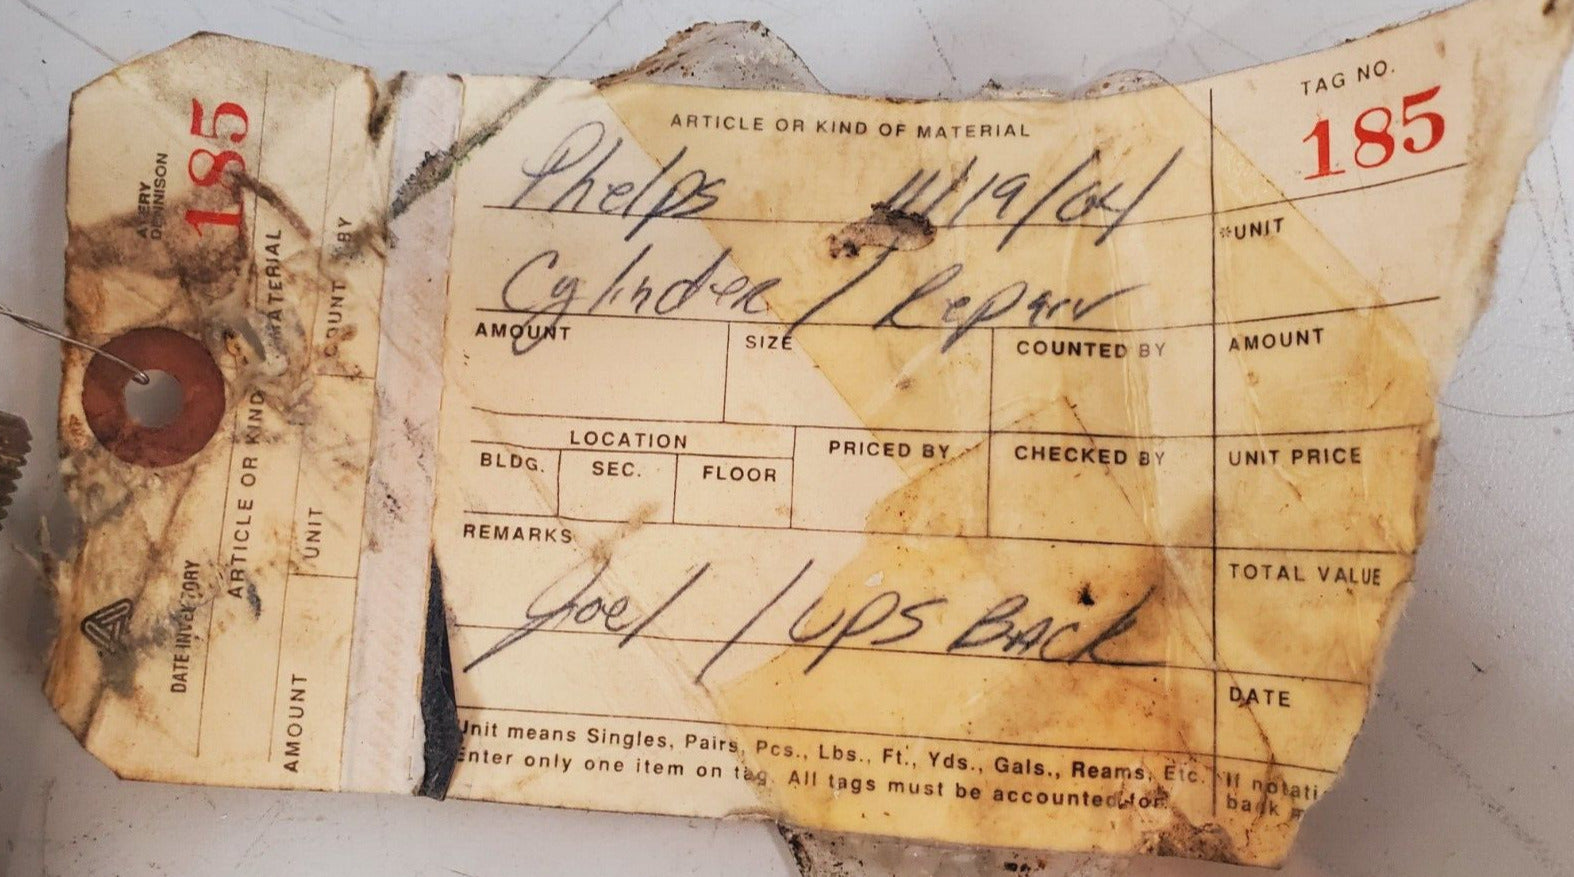 185
AVERY
DENNISON
ARTICLE OR KIND MATERIAL
COUNT BY
UNIT
AMOUNT
DATE INVENTORY
ARTICLE OR KIND OF MATERIAL
TAG NO.
185
Phelps 11/19/04
*UNIT
Cylinder / Repair
AMOUNT SIZE COUNTED BY AMOUNT
LOCATION PRICED BY CHECKED BY UNIT PRICE
BLDG. SEC. FLOOR
REMARKS
TOTAL VALUE
Joel / UPS BACK
DATE
Unit means Singles, Pairs, Pcs., Lbs., Ft., Yds., Gals., Reams, Etc.
Enter only one item on tag. All tags must be accounted for.
If
back